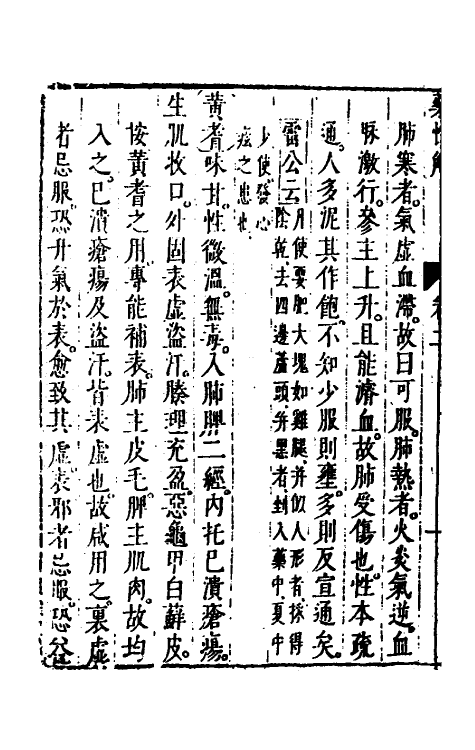 藥性解
卷二
肺寒者。氣虛血滯。故曰可服。肺熱者。火炎氣逆。血
脉激行。參主上升。且能濟血。故肺受傷也。性本疏
通。人多泥其作飽。不知少服則壅。多則反宣通矣。
雷公云
凡使要肥大塊如雞腿并似人形者採得
陰乾去四邊蘆頭并黑者剉入藥中夏中
少使發心
痃之患也
黃耆味甘。性微溫。無毒。入肺脾二經。內托已潰瘡瘍。
生肌收口。外固表虛盜汗。腠理充盈。惡龜甲白蘚皮。
按黃耆之用。專能補表。肺主皮毛。脾主肌肉。故均
入之。已潰瘡瘍及盜汗。皆表虛也。故咸用之。裏虛
者忌服。恐升氣於表。愈致其虛。表邪者忌服。恐益